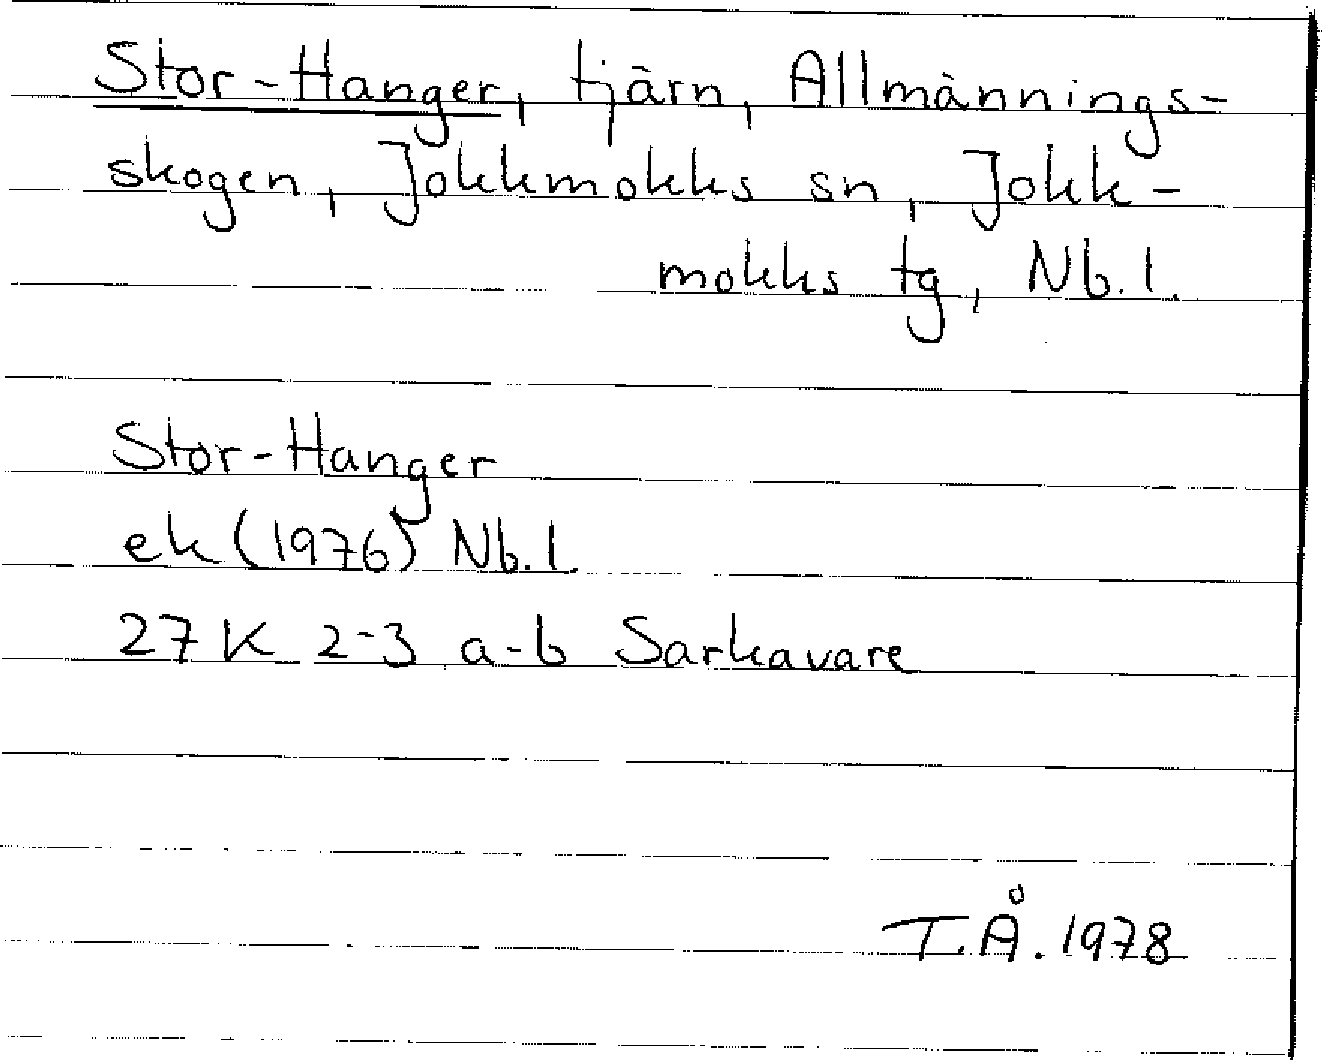 Stor-Hanger, tjärn, Allmännings-
skogen, Jokkmokks sn, Jokk-
mokks tg, Nb. l.
Stor-Hanger
ek (1976) Nb. l.
27 K 2-3 a-b Sarkavare
T.Å. 1978